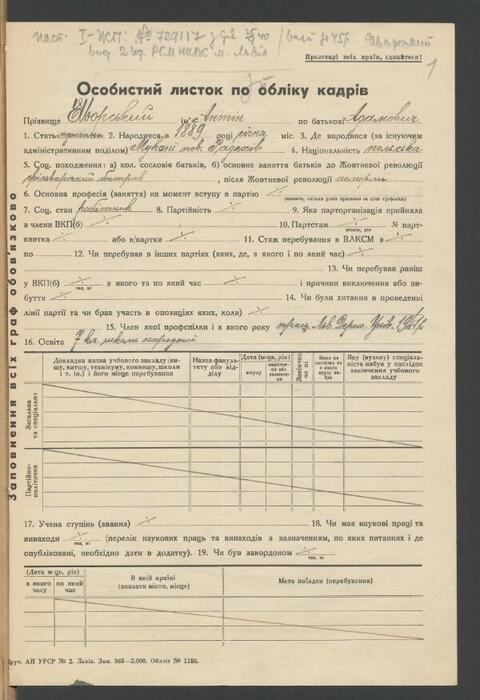 паст. I-ЖП: № 729117
вид 2 від. РСМ НКВС м. Львів
Пролетарі всіх країн, єднайтеся!
1
Особистий листок по обліку кадрів
Прізвище ім'я Антін по батькові Адамович
1. Стать мужчина 2. Народився в 1889 році січня міс. 3. Де народився (за існуючим
адміністративним поділом) пов. Радехов 4. Національність польська
5. Соц. походження: а) кол. сословіє батьків, б) основне заняття батьків до Жовтневої революції
після Жовтневої революції померли
6. Основна професія (заняття) на момент вступу в партію
(вказати, скільки років працював на цій професії)
7. Соц. стан робітник 8. Партійність 9. Яка парторганізація прийняла
в члени ВКП(б) 10. Партстаж № парт-
місяць, рік
квитка або к/картки 11. Стаж перебування в ВЛКСМ з
по 12. Чи перебував в інших партіях (яких, де, з якого і по який час)
13. Чи перебував раніш
у ВКП(б) з якого та по який час і причини виключення або ви-
так, ні
буття 14. Чи були хитання в проведенні
лінії партії та чи брав участь в опозиціях яких, коли)
15. Член якої профспілки і з якого року праць. Держ. 1941 р
16. Освіта 7 кл. школи
Докладна назва учбового закладу (ви-
шу, витшу, технікуму, комвишу, школи
і т. ін.) і його місце перебування
Назва факуль-
тету або від-
ділу
(Дата м-ць, рік)
вступу
закінчен-
ня або
Закінчив
чи ні
Яку (вузьку) спеціаль-
ність набув у наслідок
закінчення учбового
закладу
Загальна
та спеціальна
Партійно-
політична
Заповнення всіх граф обов'язково
17. Учена ступінь (звання) 18. Чи має наукові праці та
винаходи (перелік наукових праць та винаходів з зазначенням, по яких питаннях і де
так, ні
опубліковані, необхідно дати в додатку). 19. Чи був закордоном
так, ні
(Дата м-ць, рік)
в якого
часу
по який
час
В якій країні
(вказати місто, місце)
Мета поїздки (перебування)
Друк. АН УРСР № 2. Львів. Зам. 368—2.000. Обліліт № 1186.